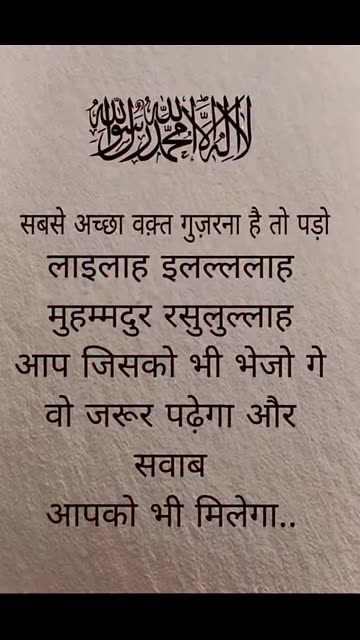 لا إله إلا الله محمد رسول الله
सबसे अच्छा वक़्त गुज़रना है तो पड़ो
लाइलाह इलल्ललाह
मुहम्मदुर रसुलुल्लाह
आप जिसको भी भेजो गे
वो जरूर पढ़ेगा और
सवाब
आपको भी मिलेगा..